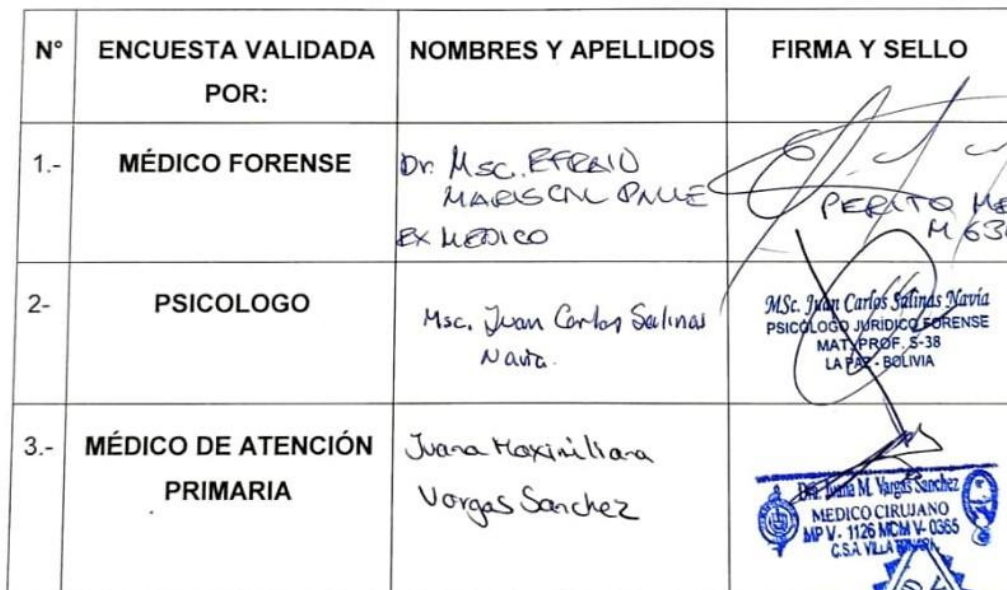 N° ENCUESTA VALIDADA POR: NOMBRES Y APELLIDOS FIRMA Y SELLO
1.- MÉDICO FORENSE
Dr. Msc. EFRAIN
MARISCAL
EX MEDICO
PERITO ME
M 63
2- PSICOLOGO
Msc. Juan Carlos Salinas
Navia.
MSc. Juan Carlos Salinas Navía
PSICÓLOGO JURÍDICO FORENSE
MAT. PROF. S-38
LA PAZ - BOLIVIA
3.- MÉDICO DE ATENCIÓN
PRIMARIA
Juana Maximiliana
Vargas Sanchez
Dra. Juana M. Vargas Sanchez
MEDICO CIRUJANO
MP V- 1126 MCM V- 0365
C.S.A. VILLA